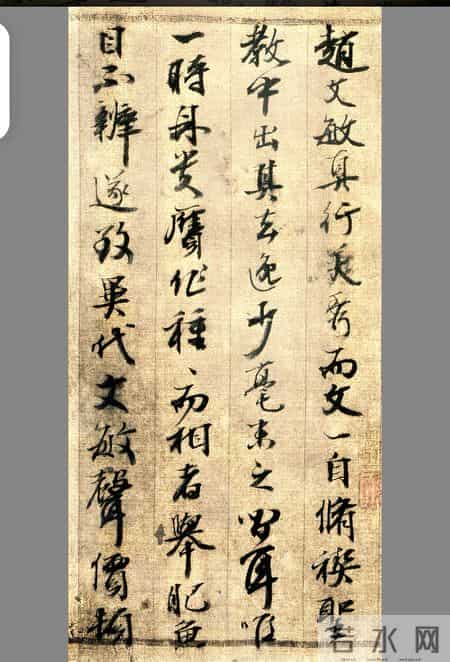 趙文敏真行美秀而文一自脩禊聖
教中出其去逸少毫末之間耳唯
一時贋作種〻而相者舉肥魚
目不辨遂致異代文敏聲價
若水网